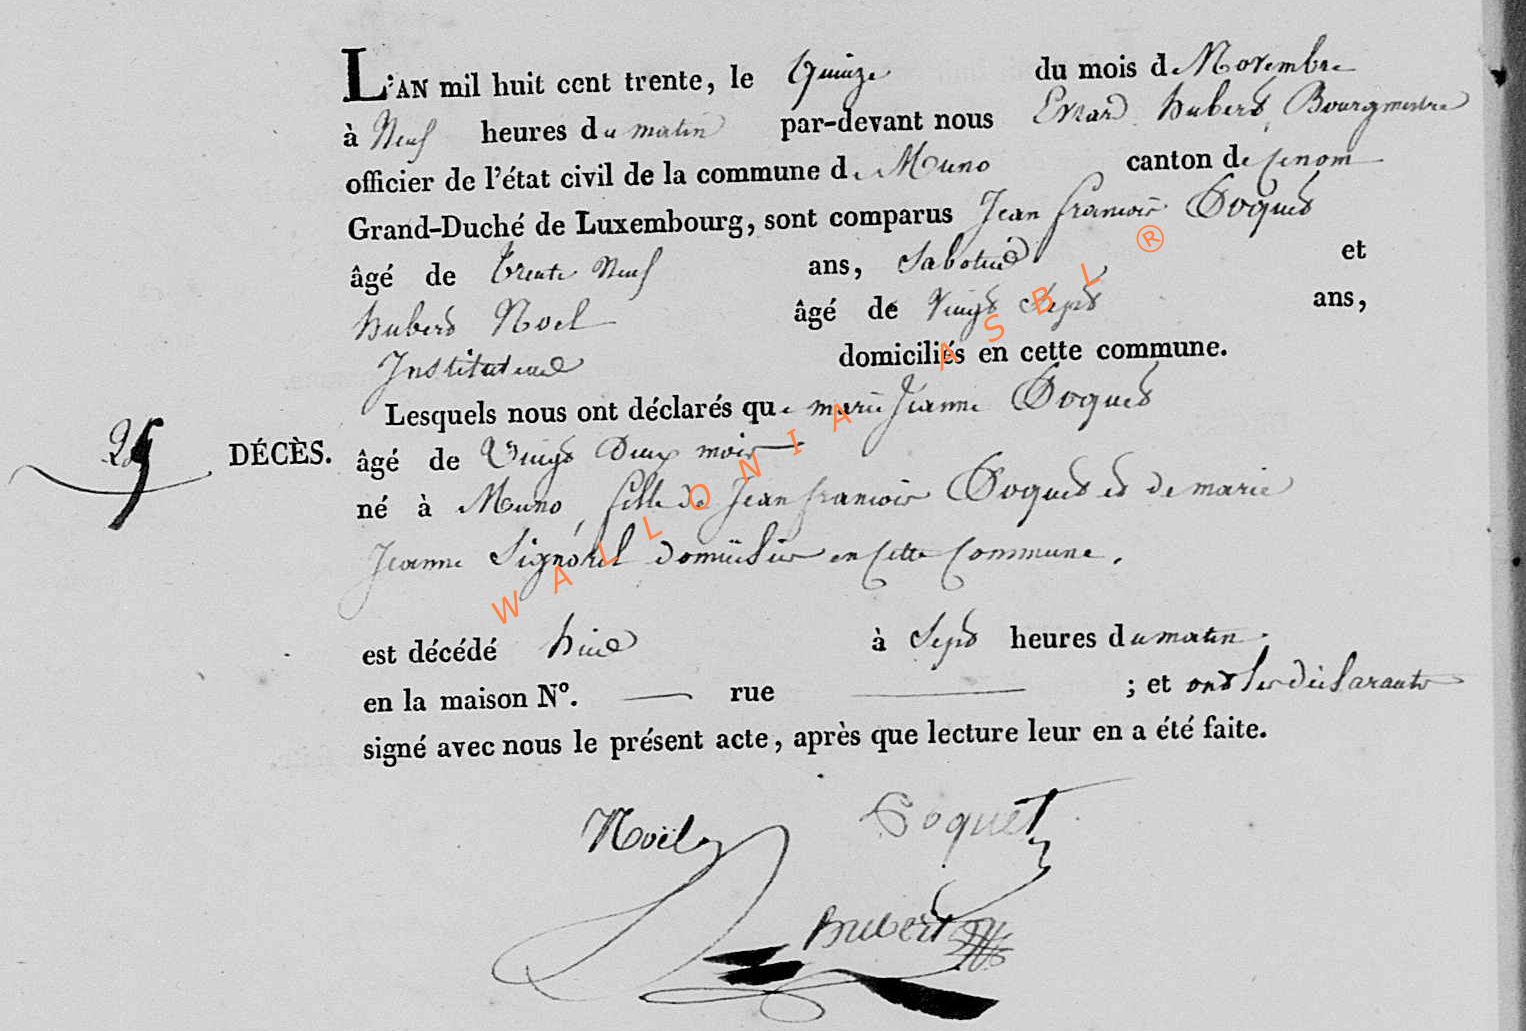 L'AN mil huit cent trente, le Quinze du mois de Novembre
à Neuf heures du matin par-devant nous Evrard hubert, Bourgmestre
officier de l'état civil de la commune de Muno canton de
Grand-Duché de Luxembourg, sont comparus Jean francois Doquet
âgé de trente Neuf ans, Sabotier et
hubert Noel âgé de Vingt Sept ans,
Instituteur domiciliés en cette commune.
Lesquels nous ont déclarés que marie Jeanne Doquet
25
DÉCÈS.
âgé de Vingt Deux mois
né à Muno, fille de Jean francois Doquet et de marie
Jeanne Signorel domicilier en cette commune.
est décédé hier à Sept heures du matin.
en la maison N°. — rue — ; et ont les déclarants
signé avec nous le présent acte, après que lecture leur en a été faite.
Noël Doquet
hubert
WALLONIA ASBL ®